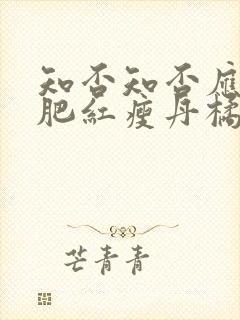 知否知否應
肥紅瘦丹橘
芒青青